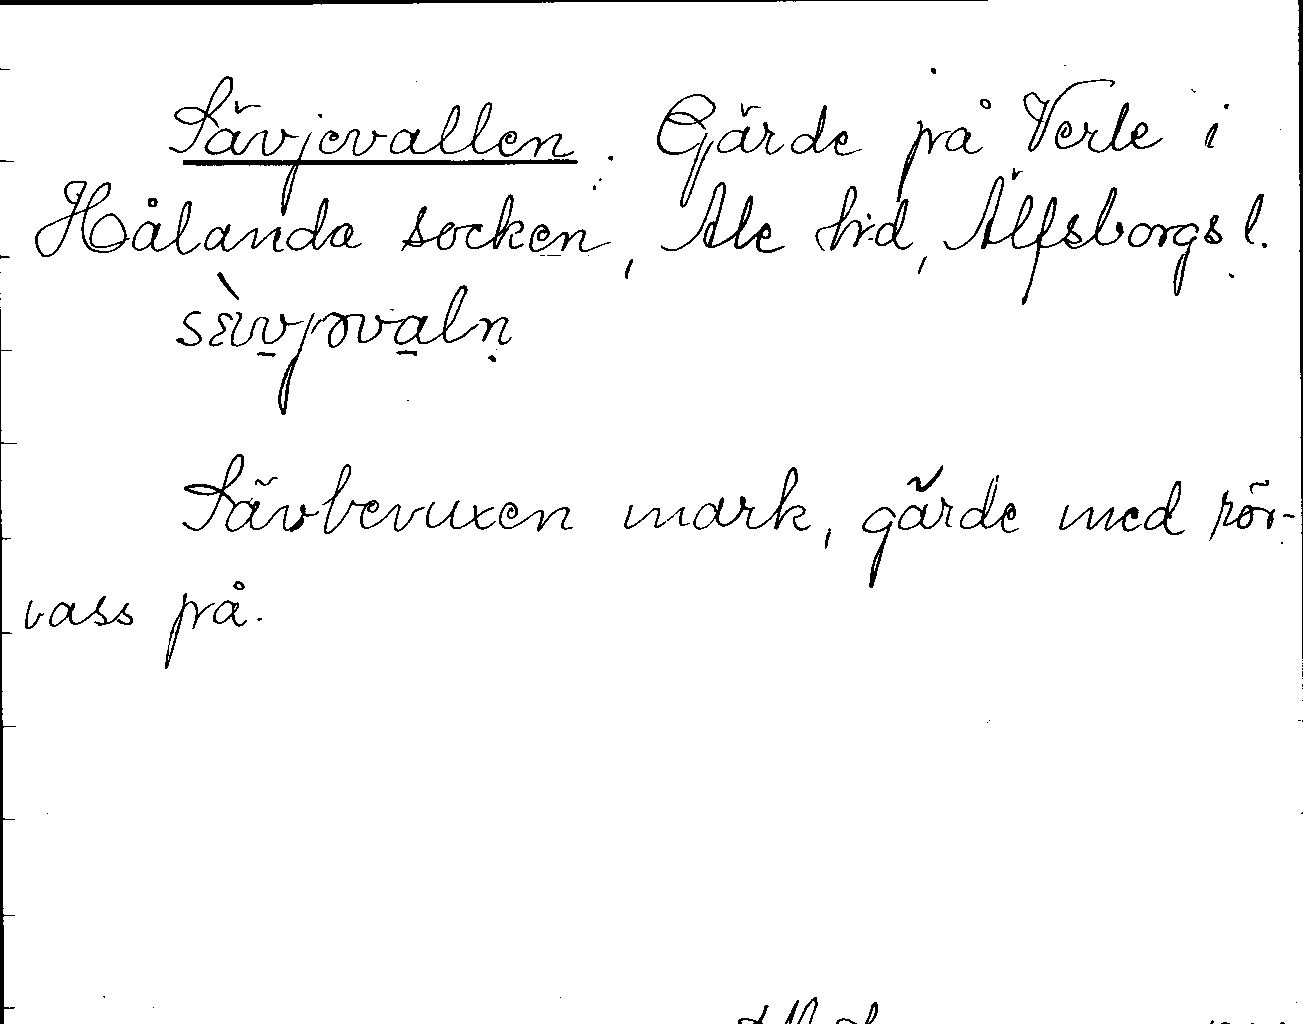 Sävjevallen. Gärde på Verle i
Hålanda socken, Ale hd, Älfsborgs l.
sɛ̀vjəvaln̥
Sävbevuxen mark, gärde med rör-
vass på.